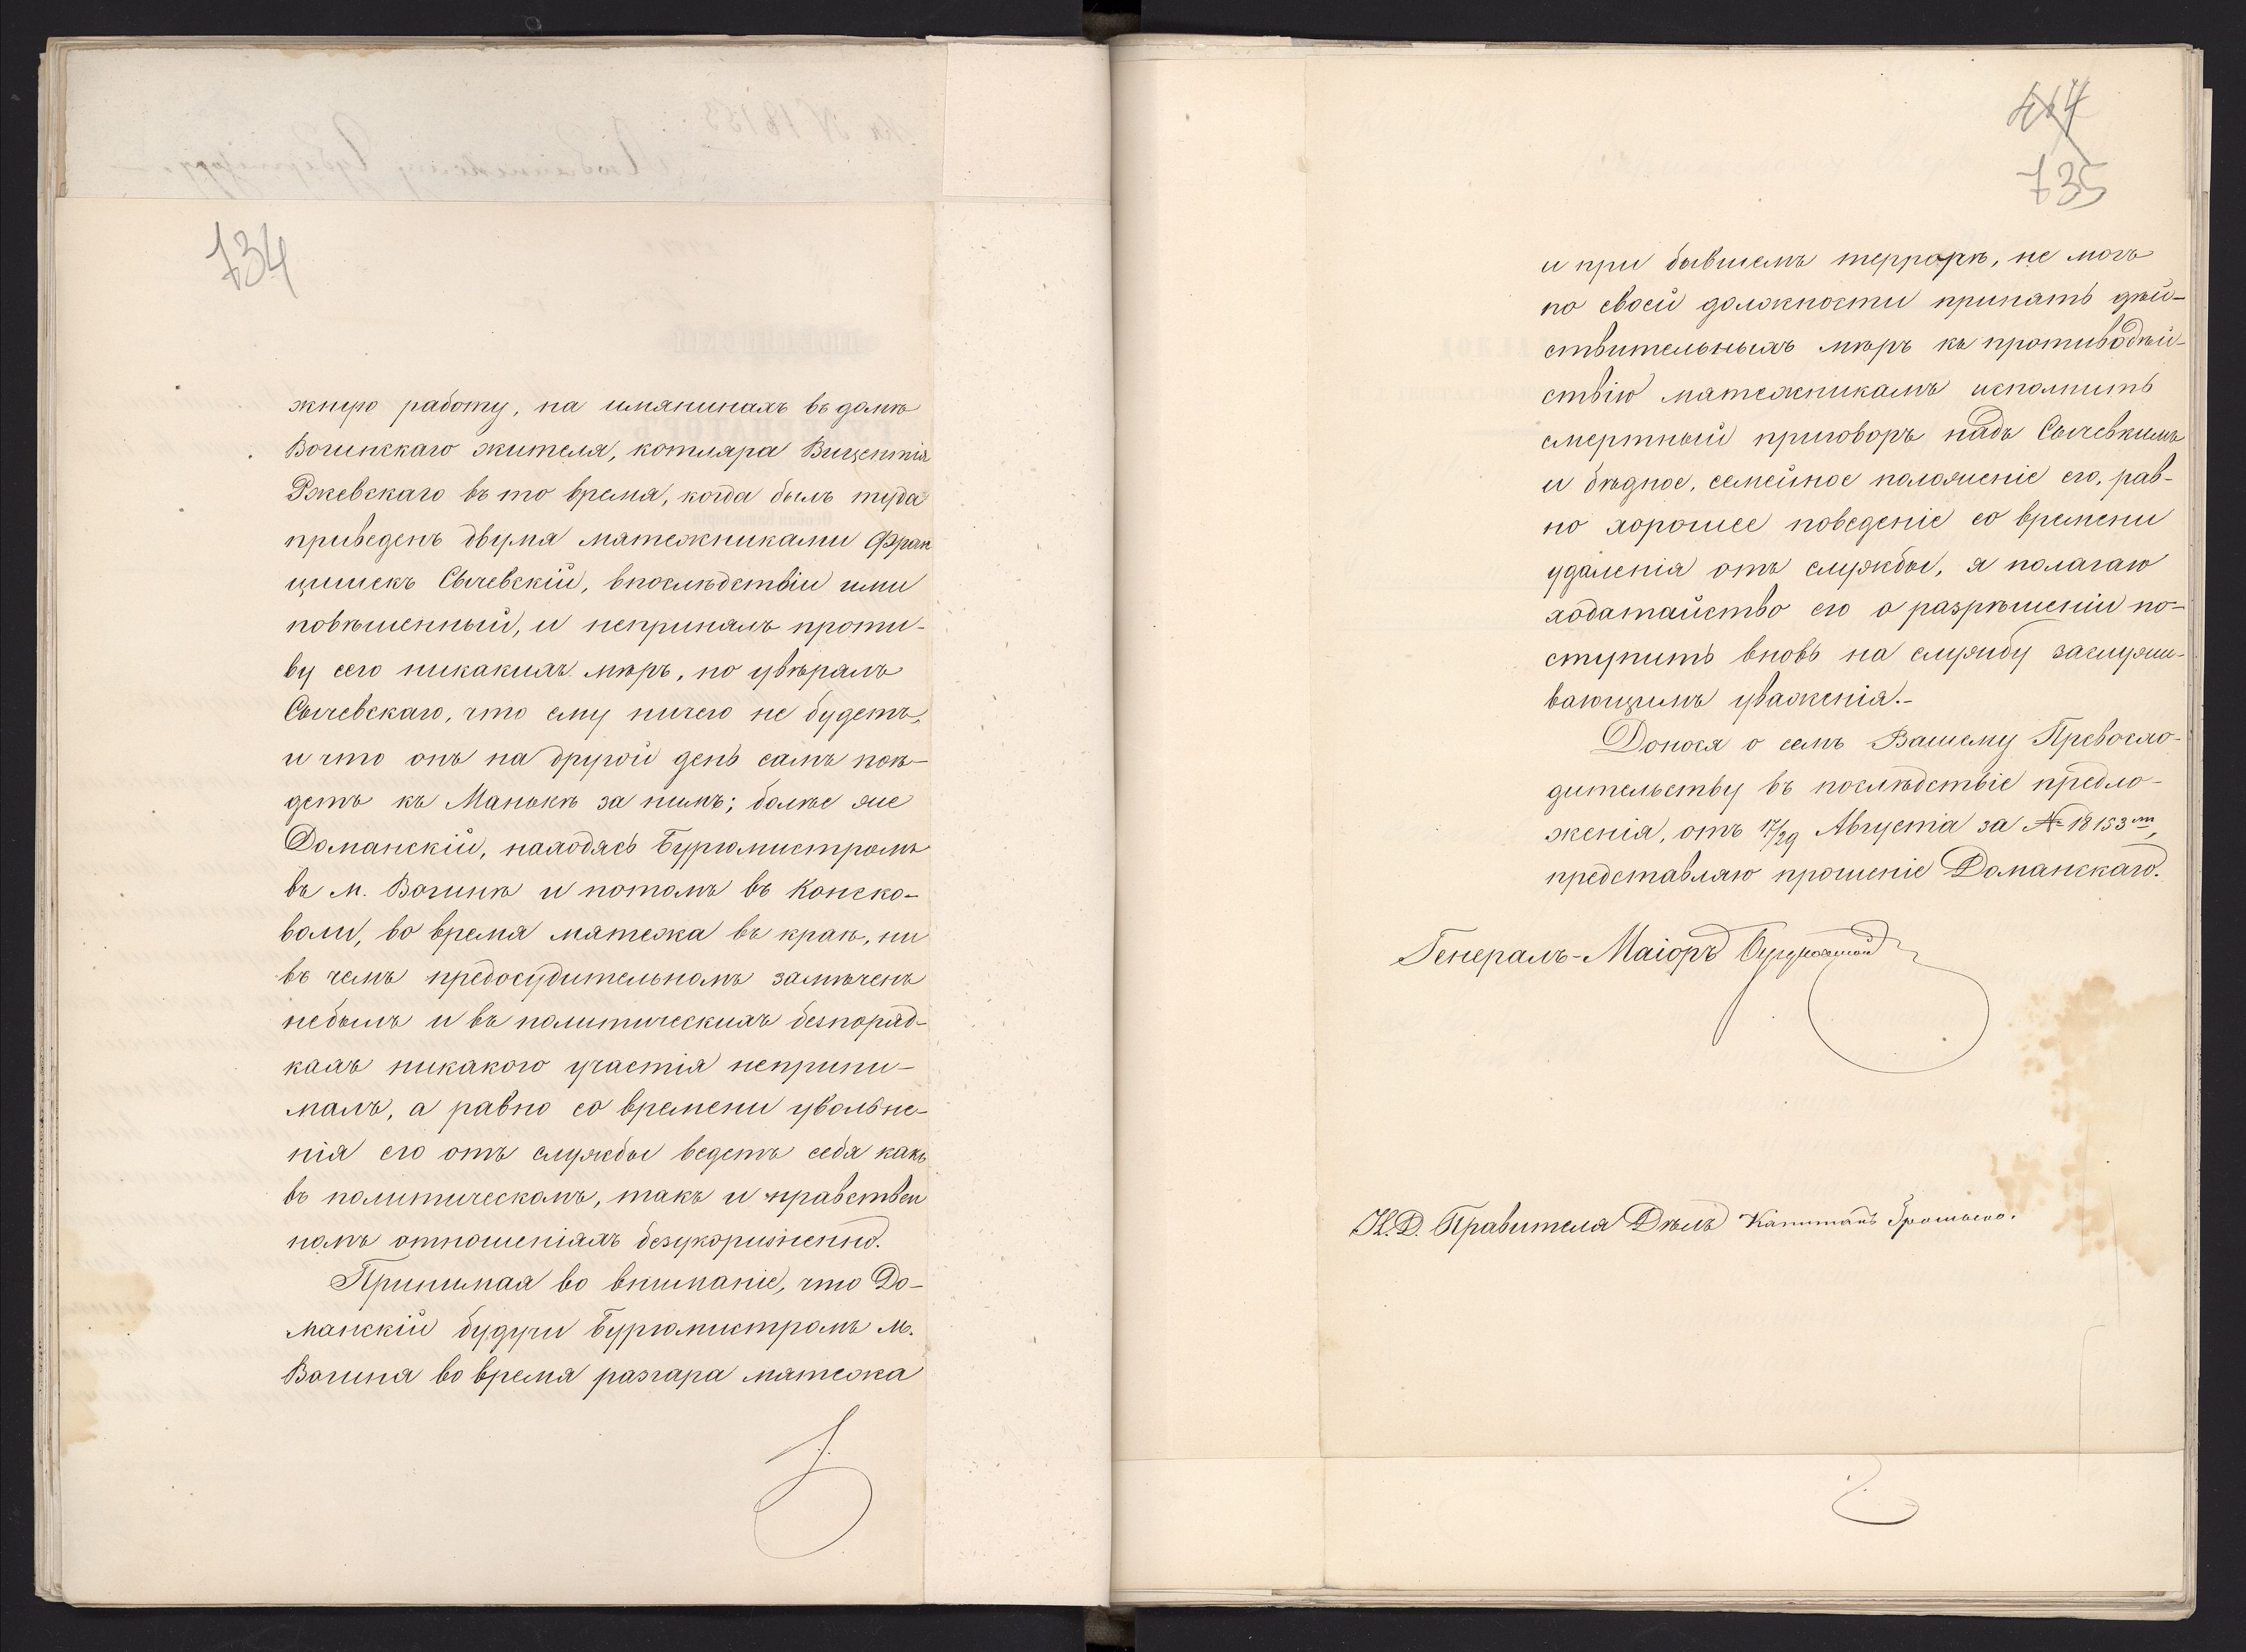 734
жнюю работу, на имянинахъ въ домѣ
Вогинскаго жителя, котляра Вицентія
Ржевскаго въ то время, когда былъ туда
приведенъ двумя мятежниками Фран
цишекъ Сычевскій, впослѣдствіи ими
повѣшенный, и непринялъ проти-
ву сего никакихъ мѣръ, но увѣрялъ
Сычевскаго, что ему ничего не будетъ,
и что онъ на другой день самъ поѣ-
детъ къ Манькѣ за нимъ; болѣе же
Доманскій, находясь Бургомистромъ
въ м. Вогинѣ и потомъ въ Конско-
воли, во время мятежа въ краѣ, ни
въ чемъ предосудительномъ замѣченъ
небылъ и въ политическихъ безпоряд-
кахъ никакого участія неприни-
малъ, а равно со времени увольне-
нія его отъ службы ведетъ себя какъ
въ политическомъ, такъ и нравствен
номъ отношеніяхъ безукоризненно.
Принимая во вниманіе, что До-
манскій будучи Бургомистромъ м.
Вогиня во время разгара мятежа
735
и при бывшемъ террорѣ, не могъ
по своей должности принять дѣй-
ствительныхъ мѣръ къ противодѣй-
ствію мятежникамъ исполнить
смертный приговоръ надъ Сычевкимъ
и бѣдное, семейное положеніе его, рав-
но хорошее поведеніе со времени
удаленія отъ службы, я полагаю
ходатайство его о разрѣшеніи по-
ступить вновь на службу заслужи-
вающимъ уваженія.-
Донося о семъ Вашему Превосхо-
дительству въ послѣдствіе предло-
женія, отъ 17/29 Августа за № 18153 ᵐ,
представляю прошеніе Доманскаго.
Генералъ-Маіоръ
И.Д. Правителя Дѣлъ Капитанъ